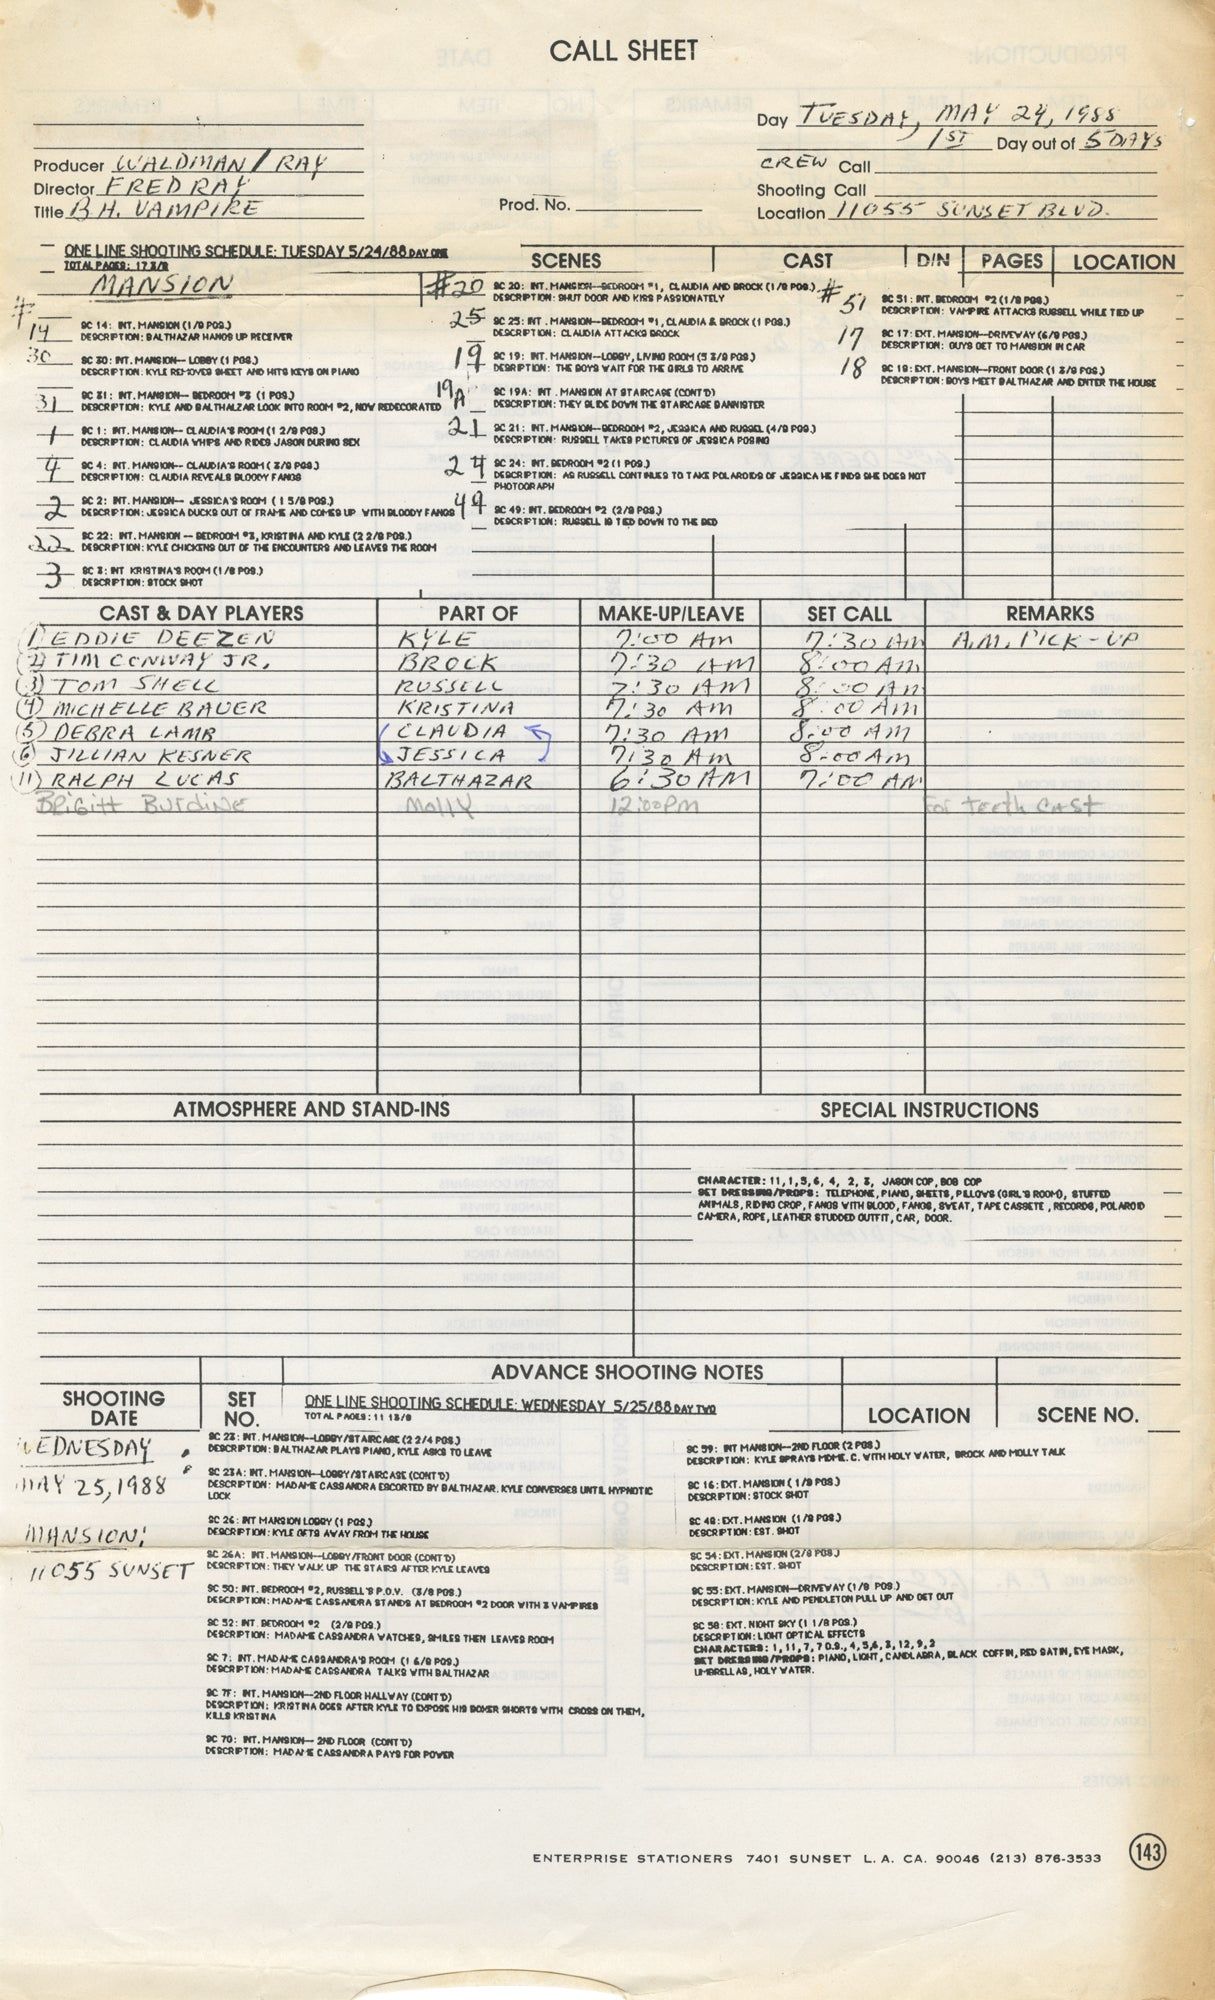 CALL SHEET
Day TUESDAY, MAY 24, 1988
1ST Day out of 5 DAYS
Producer WALDMAN / RAY
CREW Call
Director FRED RAY
Shooting Call
Title B.H. VAMPIRE
Prod. No.
Location 11055 SUNSET BLVD.
ONE LINE SHOOTING SCHEDULE: TUESDAY 5/24/88 DAY ONE
TOTAL PAGES: 17 3/8
SCENES CAST D/N PAGES LOCATION
MANSION
#
14 SC 14: INT. MANSION (1/8 PGS.)
DESCRIPTION: BALTHAZAR HANGS UP RECEIVER
30 SC 30: INT. MANSION-- LOBBY (1 PGS.)
DESCRIPTION: KYLE REMOVES SHEET AND HITS KEYS ON PIANO
31 SC 31: INT. MANSION-- BEDROOM #3 (1 PGS.)
DESCRIPTION: KYLE AND BALTHALZAR LOOK INTO ROOM #2, NOW REDECORATED
1 SC 1: INT. MANSION-- CLAUDIA'S ROOM (1 2/8 PGS.)
DESCRIPTION: CLAUDIA WHIPS AND RIDES JASON DURING SEX
4 SC 4: INT. MANSION-- CLAUDIA'S ROOM ( 3/8 PGS.)
DESCRIPTION: CLAUDIA REVEALS BLOODY FANGS
2 SC 2: INT. MANSION-- JESSICA'S ROOM ( 1 5/8 PGS.)
DESCRIPTION: JESSICA DUCKS OUT OF FRAME AND COMES UP WITH BLOODY FANGS
22 SC 22: INT. MANSION -- BEDROOM #3, KRISTINA AND KYLE (2 2/8 PGS.)
DESCRIPTION: KYLE CHICKENS OUT OF THE ENCOUNTERS AND LEAVES THE ROOM
3 SC 3: INT KRISTINA'S ROOM (1/8 PGS.)
DESCRIPTION: STOCK SHOT
#20 SC 20: INT. MANSION--BEDROOM #1, CLAUDIA AND BROCK (1/8 PGS.)
DESCRIPTION: SHUT DOOR AND KISS PASSIONATELY
25 SC 25: INT. MANSION--BEDROOM #1, CLAUDIA & BROCK (1 PGS.)
DESCRIPTION: CLAUDIA ATTACKS BROCK
19 SC 19: INT. MANSION--LOBBY, LIVING ROOM (5 3/8 PGS.)
DESRIPTION: THE BOYS WAIT FOR THE GIRLS TO ARRIVE
19A SC 19A: INT . MANSION AT STAIRCASE (CONT'D)
DESCRIPTION: THEY SLIDE DOWN THE STAIRCASE BANNISTER
21 SC 21: INT. MANSION--BEDROOM #2, JESSICA AND RUSSEL (4/8 PGS.)
DESCRIPTION: RUSSELL TAKES PICTURES OF JESSICA POSING
24 SC 24: INT. BEDROOM #2 (1 PGS.)
DESCRIPTION: AS RUSSELL CONTINUES TO TAKE POLAROIDS OF JESSICA HE FINDS SHE DOES NOT
PHOTOGRAPH
49 SC 49: INT. BEDROOM #2 (2/8 PGS.)
DESCRIPTION: RUSSELL IS TIED DOWN TO THE BED
# 51 SC 51: INT. BEDROOM #2 (1/8 PGS.)
DESCRIPTION: VAMPIRE ATTACKS RUSSELL WHILE TIED UP
17 SC 17: EXT. MANSION--DRIVEWAY (6/8 PGS.)
DESCRIPTION: GUYS GET TO MANSION IN CAR
18 SC 18: EXT. MANSION--FRONT DOOR (1 3/8 PGS.)
DESCRIPTION: BOYS MEET BALTHAZAR AND ENTER THE HOUSE
CAST & DAY PLAYERS PART OF MAKE-UP/LEAVE SET CALL REMARKS
(1) EDDIE DEEZEN KYLE 7:00 AM 7:30 AM A.M. PICK-UP
(2) TIM CONWAY JR. BROCK 7:30 AM 8:00 AM
(3) TOM SHELL RUSSELL 7:30 AM 8:00 AM
(4) MICHELLE BAUER KRISTINA 7:30 AM 8:00 AM
(5) DEBRA LAMB CLAUDIA 7:30 AM 8:00 AM
(6) JILLIAN KESNER JESSICA 7:30 AM 8:00 AM
(11) RALPH LUCAS BALTHAZAR 6:30 AM 7:00 AM
Brigitt Burdine Molly 12:00PM for teeth cast
ATMOSPHERE AND STAND-INS SPECIAL INSTRUCTIONS
CHARACTER: 11, 1, 5, 6, 4, 2, 3, JASON COP, BOB COP
SET DRESSING/PROPS: TELEPHONE, PIANO, SHEETS, PILLOWS (GIRL'S ROOM), STUFFED
ANIMALS, RIDING CROP, FANGS WITH BLOOD, FANGS, SWEAT, TAPE CASSETE , RECORDS, POLAROID
CAMERA, ROPE, LEATHER STUDDED OUTFIT, CAR, DOOR.
ADVANCE SHOOTING NOTES
SHOOTING DATE SET NO. LOCATION SCENE NO.
ONE LINE SHOOTING SCHEDULE: WEDNESDAY 5/25/88 DAY TWO
TOTAL PAGES: 11 13/8
WEDNESDAY
MAY 25, 1988
MANSION:
11055 SUNSET
SC 23: INT. MANSION--LOBBY/STAIRCASE (2 2/4 PGS.)
DESCRIPTION: BALTHAZAR PLAYS PIANO, KYLE ASKS TO LEAVE
SC 23A: INT. MANSION--LOBBY/STAIRCASE (CONT'D)
DESCRIPTION: MADAME CASSANDRA ESCORTED BY BALTHAZAR. KYLE CONVERSES UNTIL HYPNOTIC
LOCK
SC 26: INT MANSION LOBBY (1 PGS.)
DESCRIPTION: KYLE GETS AWAY FROM THE HOUSE
SC 26A: INT. MANSION--LOBBY/FRONT DOOR (CONT'D)
DESCRIPTION: THEY WALK UP THE STAIRS AFTER KYLE LEAVES
SC 50: INT. BEDROOM #2, RUSSELL'S P.O.V. (3/8 PGS.)
DESCRIPTION: MADAME CASSANDRA STANDS AT BEDROOM #2 DOOR WITH 3 VAMPIRES
SC 52: INT. BEDROOM #2 (2/8 PGS.)
DESCRIPTION: MADAME CASSANDRA WATCHES, SMILES THEN LEAVES ROOM
SC 7: INT. MADAME CASSANDRA'S ROOM (1 6/8 PGS.)
DESCRIPTION: MADAME CASSANDRA TALKS WITH BALTHAZAR
SC 7F: INT. MANSION--2ND FLOOR HALLWAY (CONT'D)
DESCRIPTION: KRISTINA GOES AFTER KYLE TO EXPOSE HIS BOXER SHORTS WITH CROSS ON THEM,
KILLS KRISTINA
SC 70: INT. MANSION-- 2ND FLOOR (CONT'D)
DESCRIPTION: MADAME CASSANDRA PAYS FOR POWER
SC 59: INT MANSION--2ND FLOOR (2 PGS.)
DESCRIPTION: KYLE SPRAYS MDME. C. WITH HOLY WATER, BROCK AND MOLLY TALK
SC 16: EXT. MANSION ( 1/8 PGS.)
DESCRIPTION: STOCK SHOT
SC 48: EXT. MANSION (1/8 PGS.)
DESCRIPTION: EST. SHOT
SC 54: EXT. MANSION (2/8 PGS.)
DESCRIPTION: EST. SHOT
SC 55: EXT. MANSION--DRIVEWAY (1/8 PGS.)
DESCRIPTION: KYLE AND PENDLETON PULL UP AND GET OUT
SC 58: EXT. NIGHT SKY (1 1/8 PGS.)
DESCRIPTION: LIGHT OPTICAL EFFECTS
CHARACTERS: 1, 11, 7, 7 D.S., 4, 5, 6, 3, 12, 9, 2
SET DRESSING/PROPS: PIANO, LIGHT, CANDLABRA, BLACK COFFIN, RED SATIN, EYE MASK,
UMBRELLAS, HOLY WATER.
ENTERPRISE STATIONERS 7401 SUNSET L.A. CA. 90046 (213) 876-3533 143